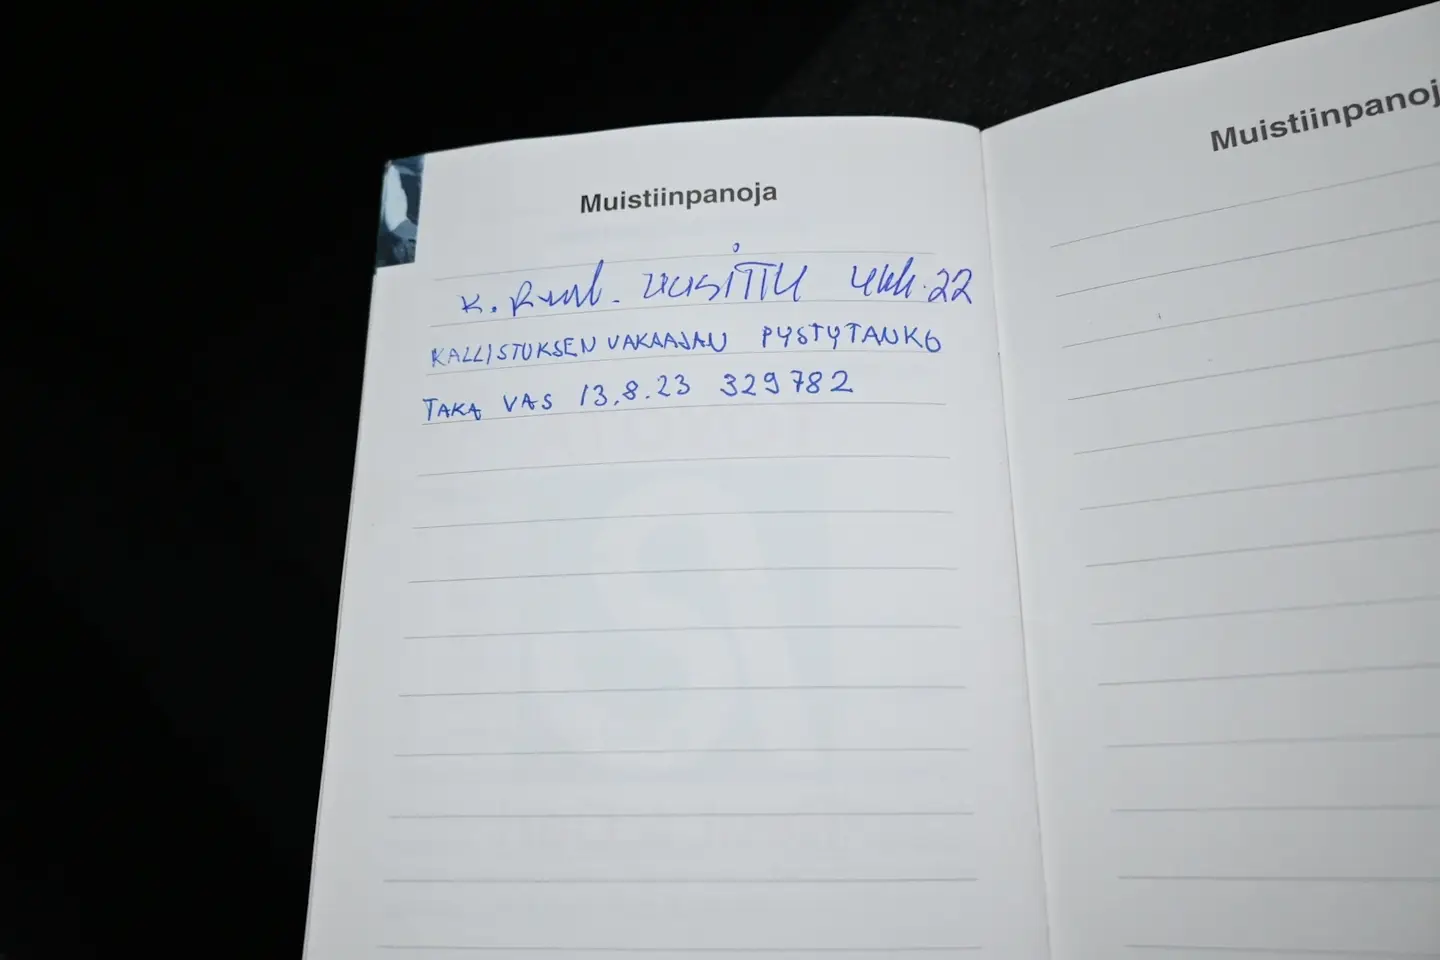 Muistiinpanoja
K. UUSITTU 22
KALLISTUKSEN VAKAAJAN PYSTYTANKO
TAKA VAS 13.8.23 329782
Muistiinpanoj